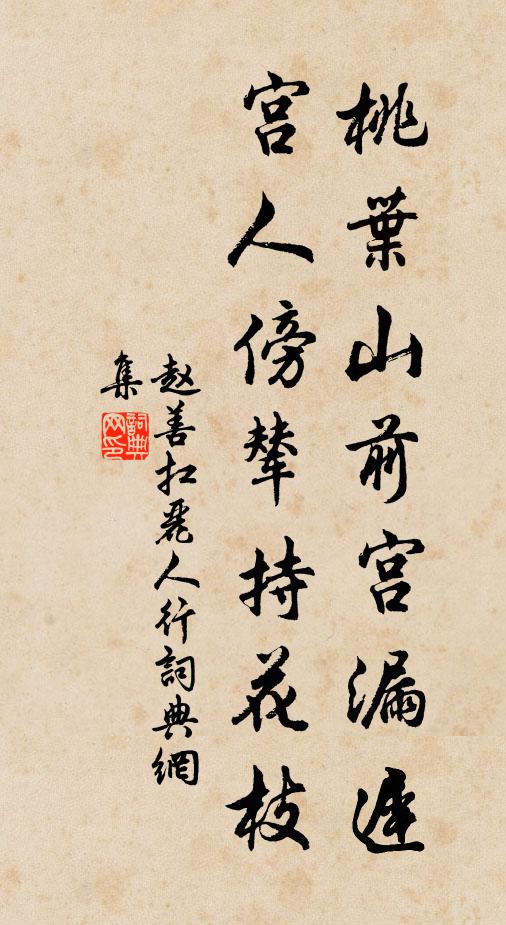 桃葉山前宫漏遲
宫人傍輦持花枝
赵善扛麗人行詞典網
集
詞典网印